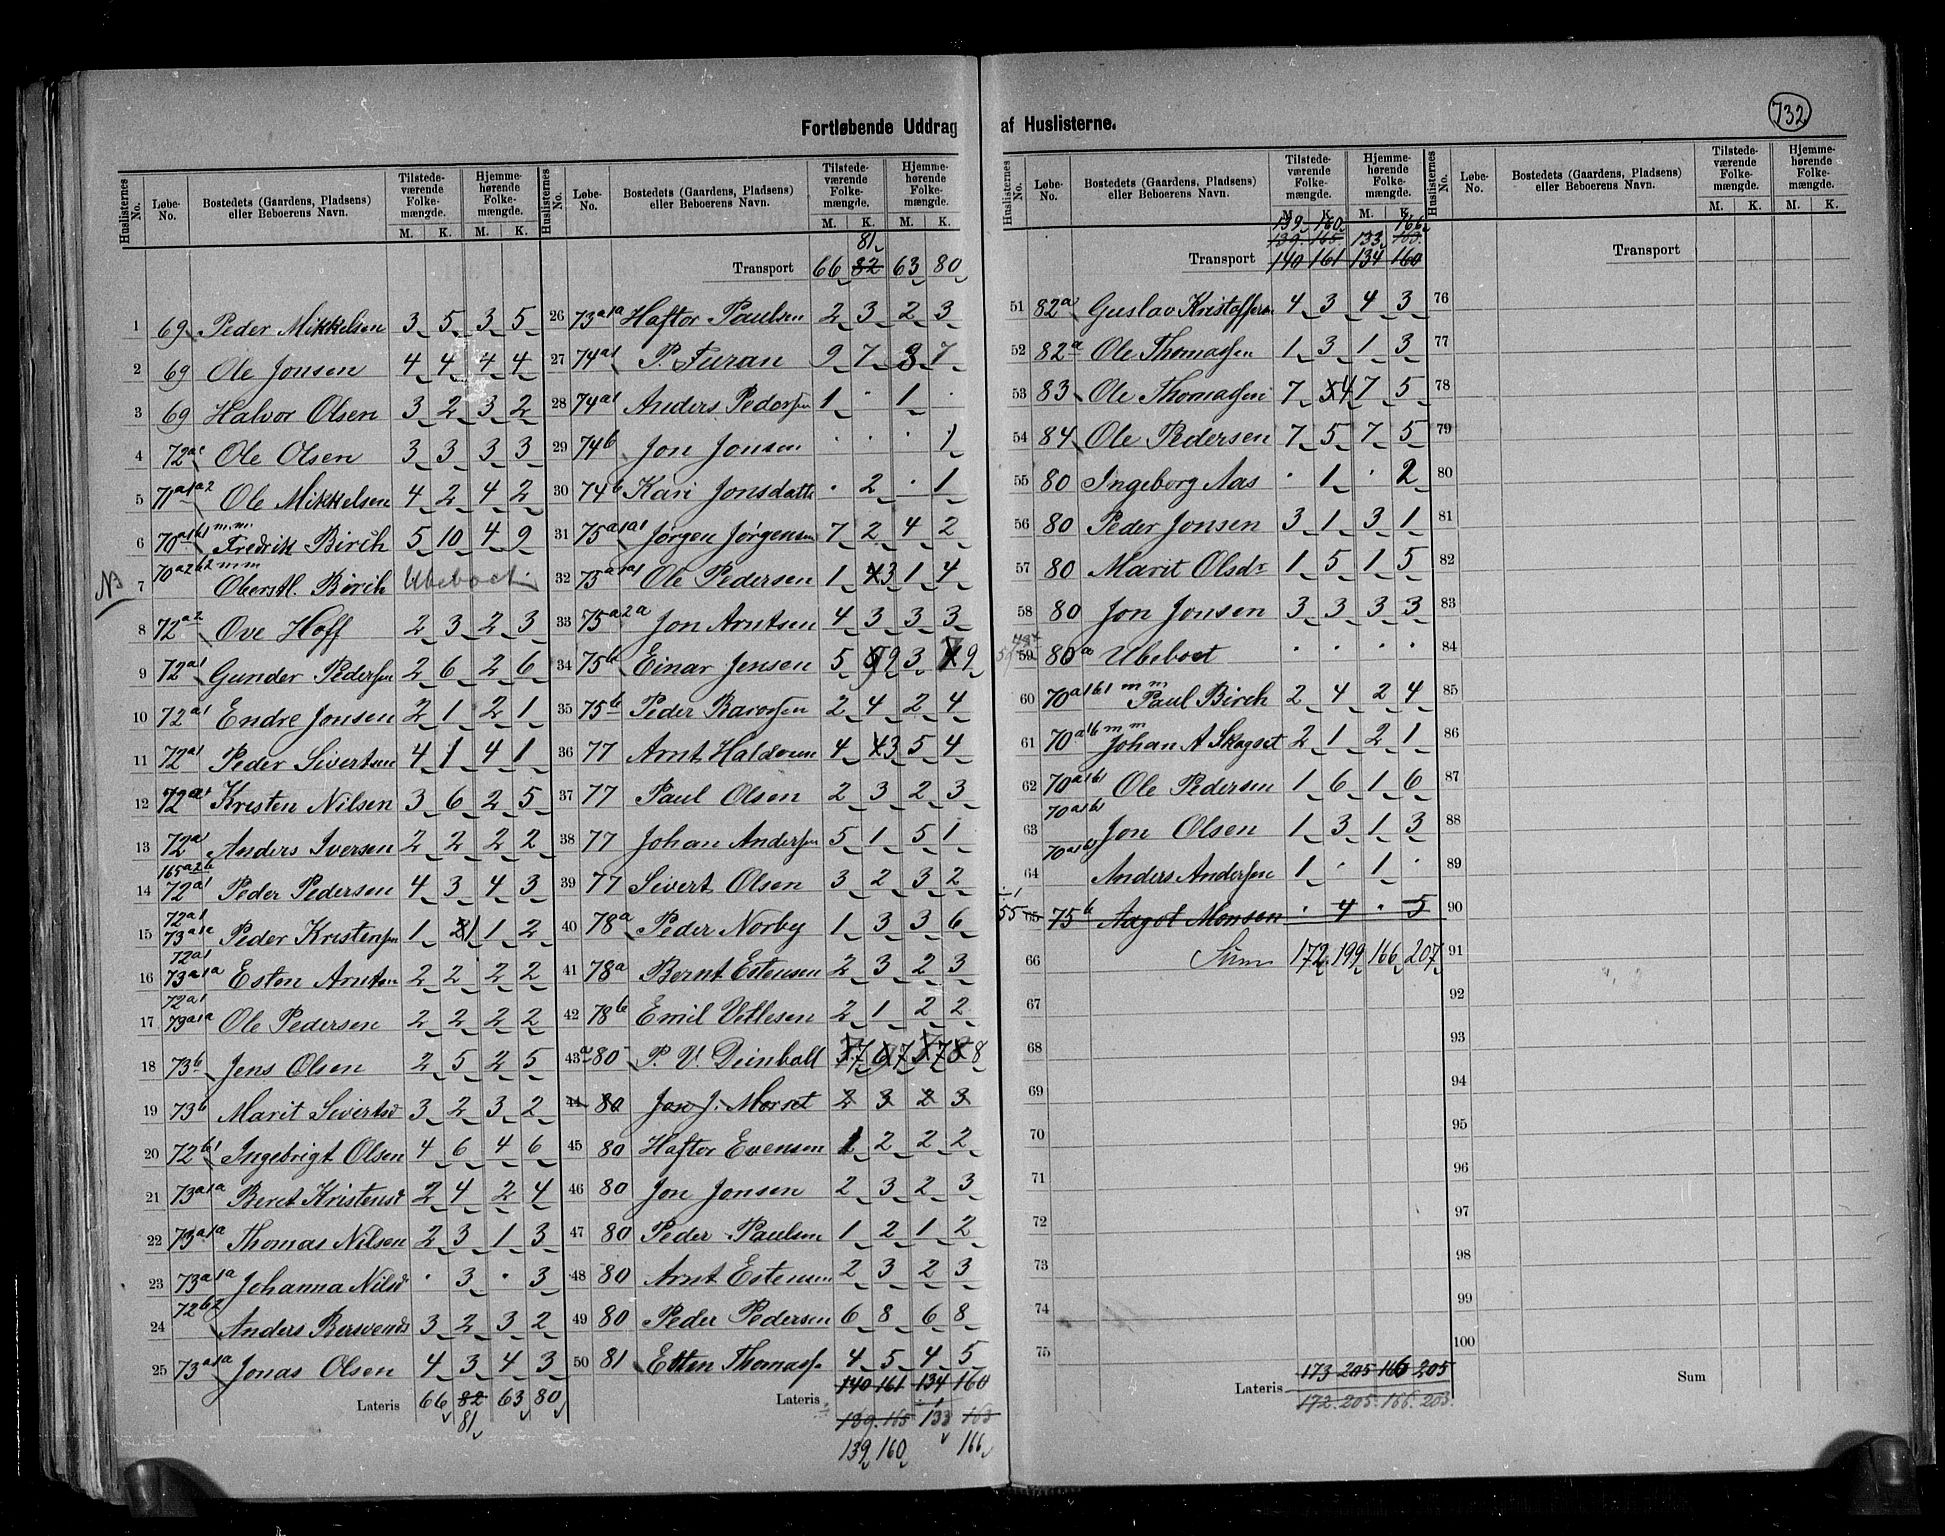 732
Fortløbende Uddrag af Huslisterne.
Huslisternes No. Løbe-No. Bostedets (Gaardens, Pladsens) eller Beboerens Navn. Tilstedeværende Folkemængde. M. K. Hjemmehørende Folkemængde. M. K.
1 69 Peder Mikkelsen 3 5 3 5
2 69 Ole Jonsen 4 4 4 4
3 69 Halvor Olsen 3 2 3 2
4 72a1 Ole Olsen 3 3 3 3
5 71a1a2 Ole Mikkelsen 4 2 4 2
6 70a1b1 m.m. Fredrik Birch 5 10 4 9
NB 7 70a2b2 m m Oberstl. Birch Ubeboet
8 72a2 Ove Hoff 2 3 2 3
9 72a1 Gunder Pedersen 2 6 2 6
10 72a1 Endre Jonsen 2 1 2 1
11 72a1 Peder Sivertsen 4 1 4 1
12 72a1 Kristen Nilsen 3 6 2 5
13 72a1 Anders Iversen 2 2 2 2
14 165a2b 72a1 Peder Pedersen 4 3 4 3
15 72a1 73a1a Peder Kristensen 1 1 1 2
16 72a1 73a1a Esten Arntsen 2 2 2 2
17 72a1 73a1a Ole Pedersen 2 2 2 2
18 73b Jens Olsen 2 5 2 5
19 73b Marit Sivertsd 3 2 3 2
20 72b1 Ingebrigt Olsen 4 6 4 6
21 73a1a Beret Kristensd 2 4 2 4
22 73a1a Thomas Nilsen 2 3 1 3
23 73a1a Johanna Nilsd · 3 · 3
24 72b2 Anders Bersvends 3 2 3 2
25 73a1a Jonas Olsen 4 3 4 3
Lateris 66 82 63 80
81
Huslisternes No. Løbe-No. Bostedets (Gaardens, Pladsens) eller Beboerens Navn. Tilstedeværende Folkemængde. M. K. Hjemmehørende Folkemængde. M. K.
81
Transport 66 82 63 80
26 73a1a Haftor Paulsen 2 3 2 3
27 74a1 P. Furan 9 7 8 7
28 74a1 Anders Pedersen 1 · 1 ·
29 74b Jon Jonsen · · · 1
30 74b Kari Jonsdatt · 2 · 1
31 75a1a1 Jørgen Jørgensen 7 2 4 2
32 75a1a1 Ole Pedersen 1 4 3 1 4
33 75a2a Jon Arntsen 4 3 3 3
34 75b Einar Jensen 5 9 3 9
35 75b Peder 2 4 2 4
36 77 Arnt Haldorsen 4 4 3 5 4
37 77 Paul Olsen 2 3 2 3
38 77 Johan Andersen 5 1 5 1
39 77 Sivert Olsen 3 2 3 2
40 78a Peder Norby 1 3 3 6
41 78a Bernt Estensen 2 3 2 3
42 78b Emil Vetlesen 2 1 2 2
43a 80 P. V. Deinboll 7 7 7 8
44 80 Jon J. Morset 2 3 2 3
45 80 Haftor Evensen 1 2 2 2
46 80 Jon Jonsen 2 3 2 3
47 80 Peder Paulsen 1 2 1 2
48 80 Arnt Estensen 2 3 2 3
49 80 Peder Pedersen 6 8 6 8
50 81 Esten Thomass. 4 5 4 5
Lateris 140 161 134 160
139 165 133 163
139 160 166
Huslisternes No. Løbe-No. Bostedets (Gaardens, Pladsens) eller Beboerens Navn. Tilstedeværende Folkemængde. M. K. Hjemmehørende Folkemængde. M. K.
139 160 166
139 165 133 163
Transport 140 161 134 160
51 82a Gustav Kristoffersen 4 3 4 3
52 82a Ole Thomassen 1 3 1 3
53 83 Ole Thomassen 7 5 4 7 5
54 84 Ole Pedersen 7 5 7 5
55 80 Ingeborg Aas · 1 · 2
56 80 Peder Jonsen 3 1 3 1
57 80 Marit Olsdr 1 5 1 5
58 80 Jon Jonsen 3 3 3 3
59 80a Ubeboet · · · ·
60 70a1b1 m m Paul Birch 2 4 2 4
61 70a1b m m Johan A Skogset 2 1 2 1
62 70a1b1 Ole Pedersen 1 6 1 6
63 70a1b1 Jon Olsen 1 3 1 3
64 70a1b1 Anders Andersen 1 · 1 ·
55 65 75b Aagot Monsen · 4 · 5
66 Sum 172 199 166 207
67
68
69
70
71
72
73
74
75
Lateris 173 205 166 205
172 205 166 203
Huslisternes No. Løbe-No. Bostedets (Gaardens, Pladsens) eller Beboerens Navn. Tilstedeværende Folkemængde. M. K. Hjemmehørende Folkemængde. M. K.
Transport
76
77
78
79
80
81
82
83
84
85
86
87
88
89
90
91
92
93
94
95
96
97
98
99
100
Sum